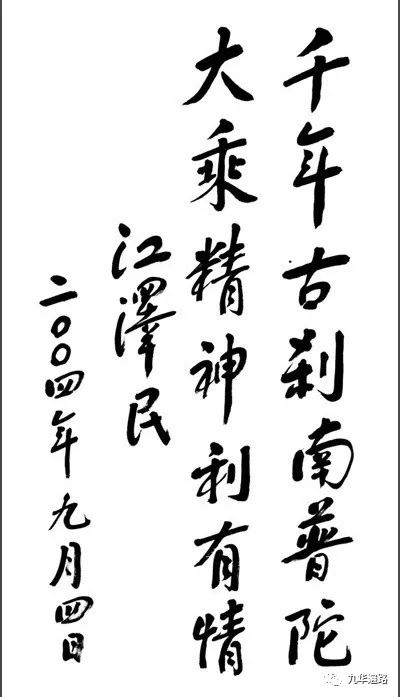 千年古刹南普陀
大乘精神利有情
江澤民
二〇〇四年九月四日
九华道路